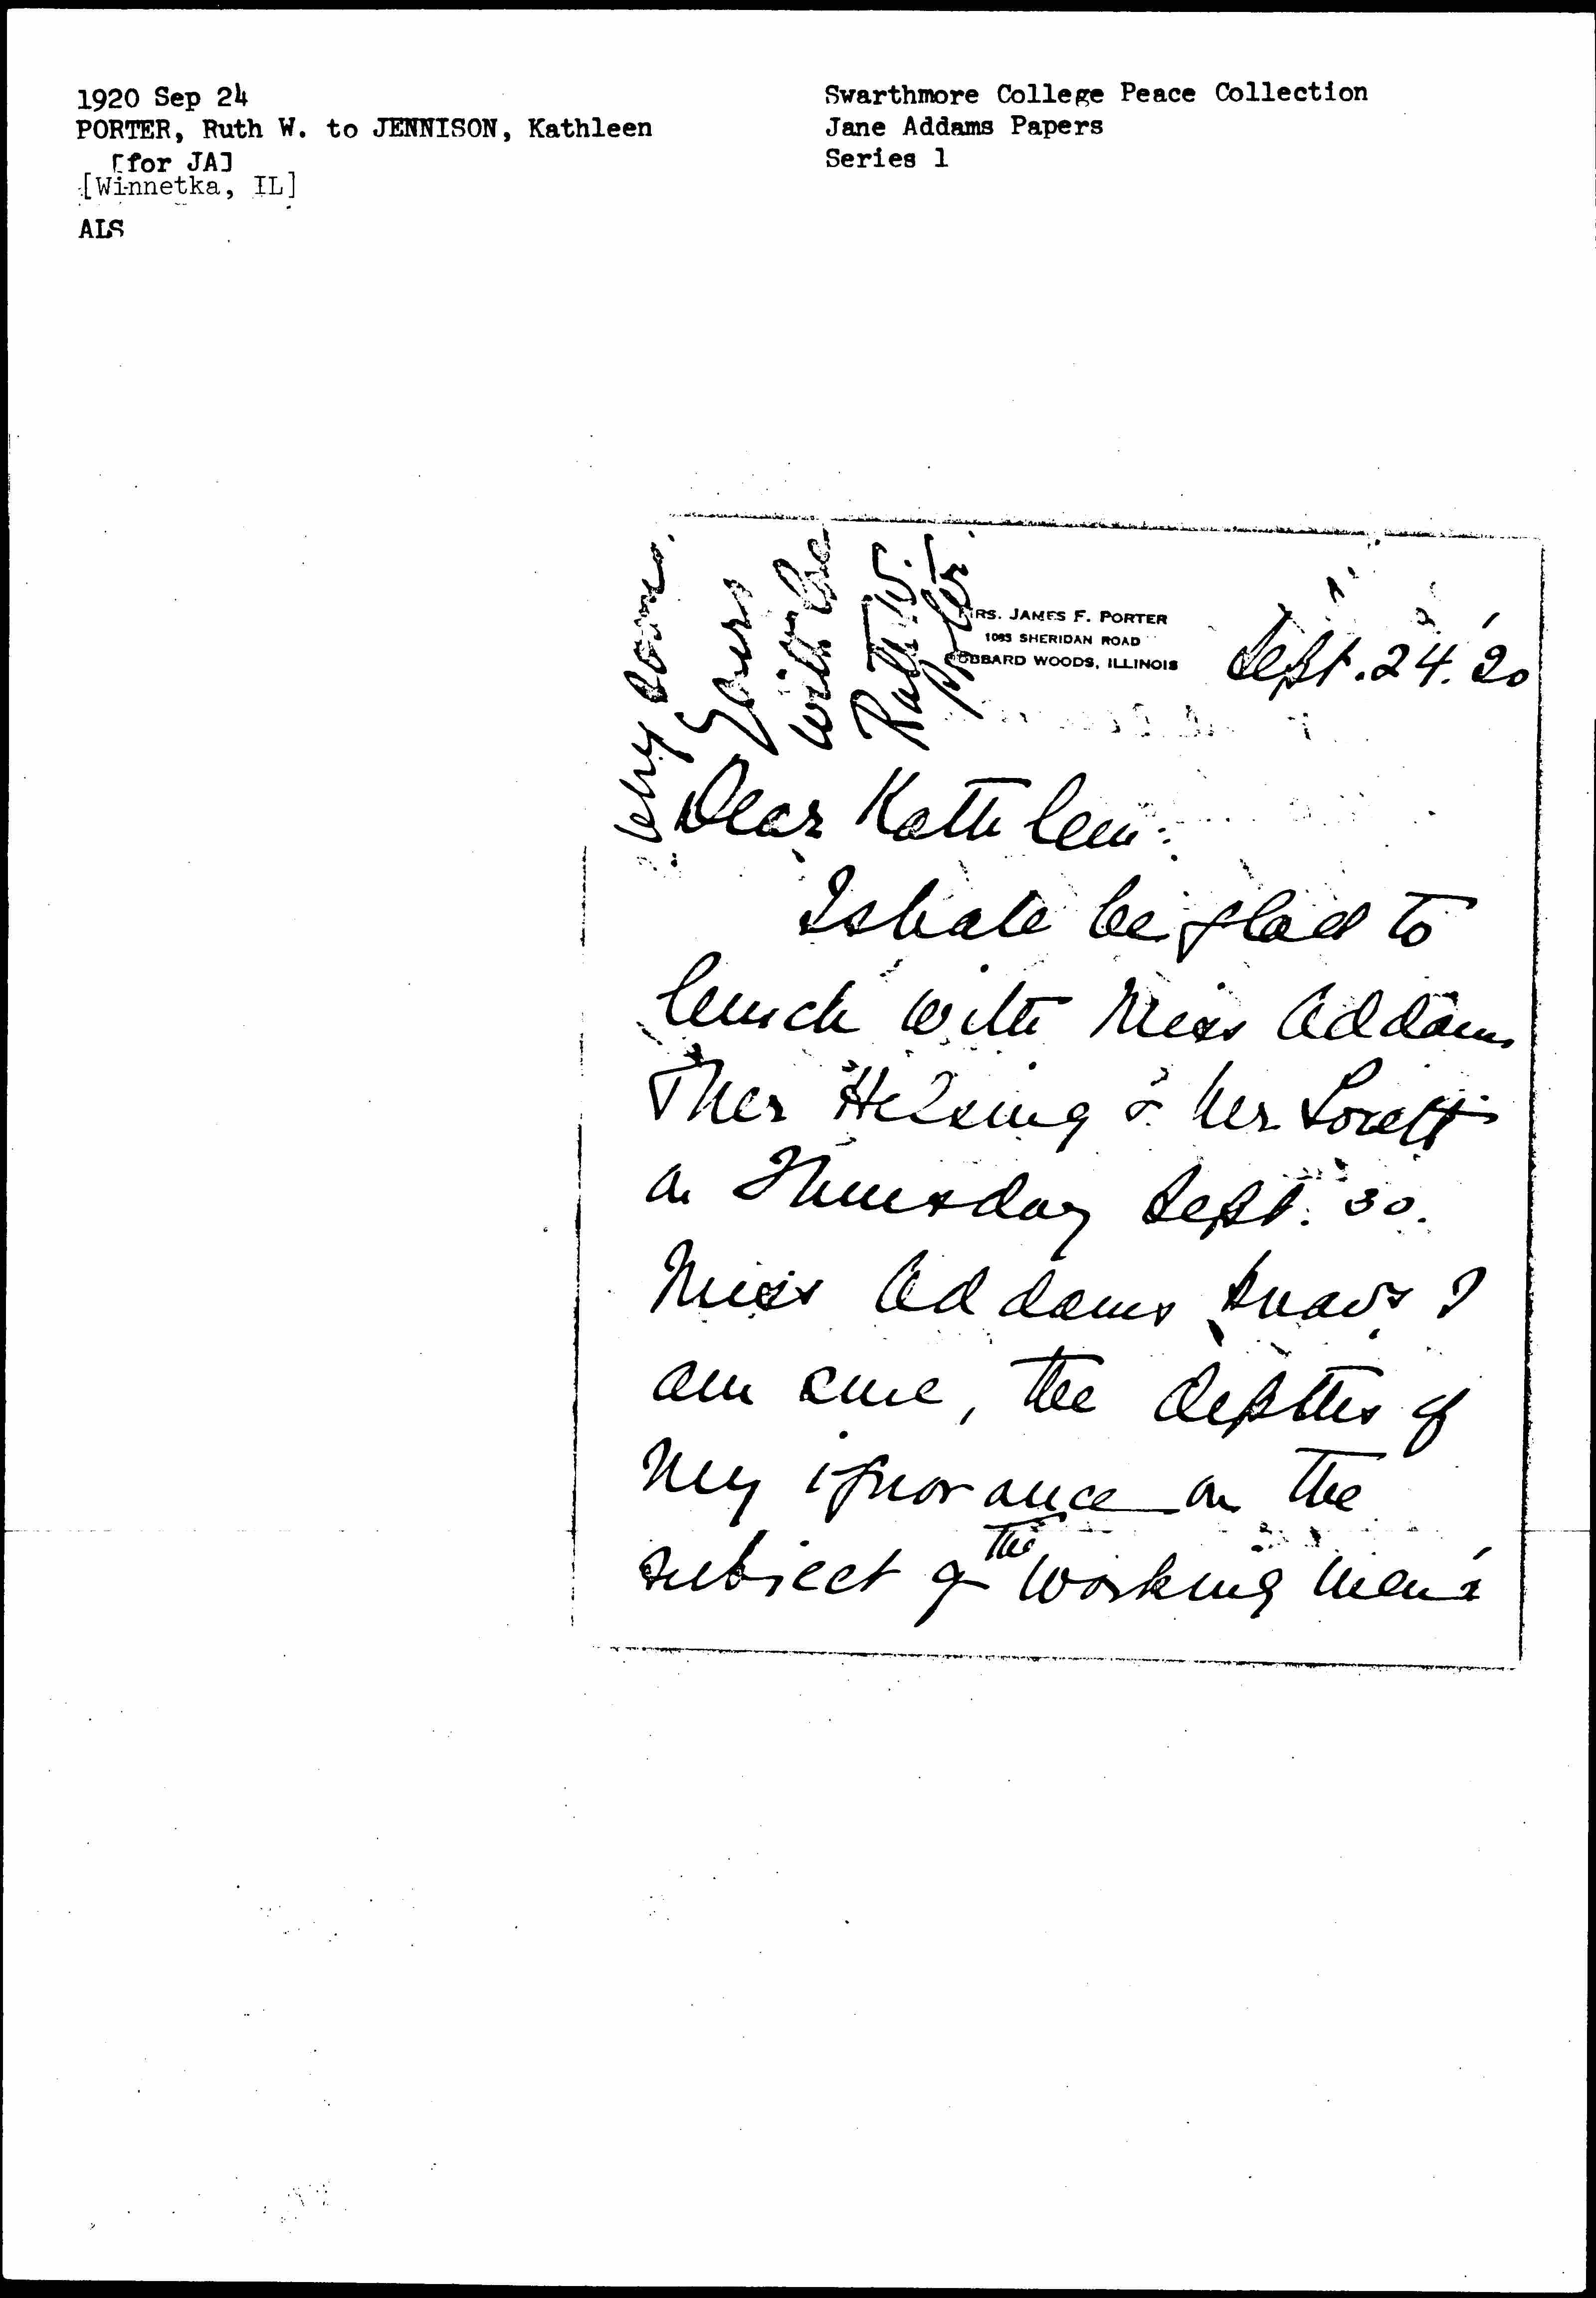 1920 Sep 24
PORTER, Ruth W. to JENNISON, Kathleen
[for JA]
[Winnetka, IL]
ALS
Swarthmore College Peace Collection
Jane Addams Papers
Series 1
MRS. JAMES F. PORTER
1085 SHERIDAN ROAD
HUBBARD WOODS, ILLINOIS
Sept. 24. '20
Dear Kathleen:
I shall be glad to
lunch with Miss Addams
Mrs & Mr Lovett
on Thursday Sept. 30.
Miss Addams knows I
am sure, the depths of
my ignorance on the
subject of the working men's
very soon.
Yours
with love
Ruth W.
Porter